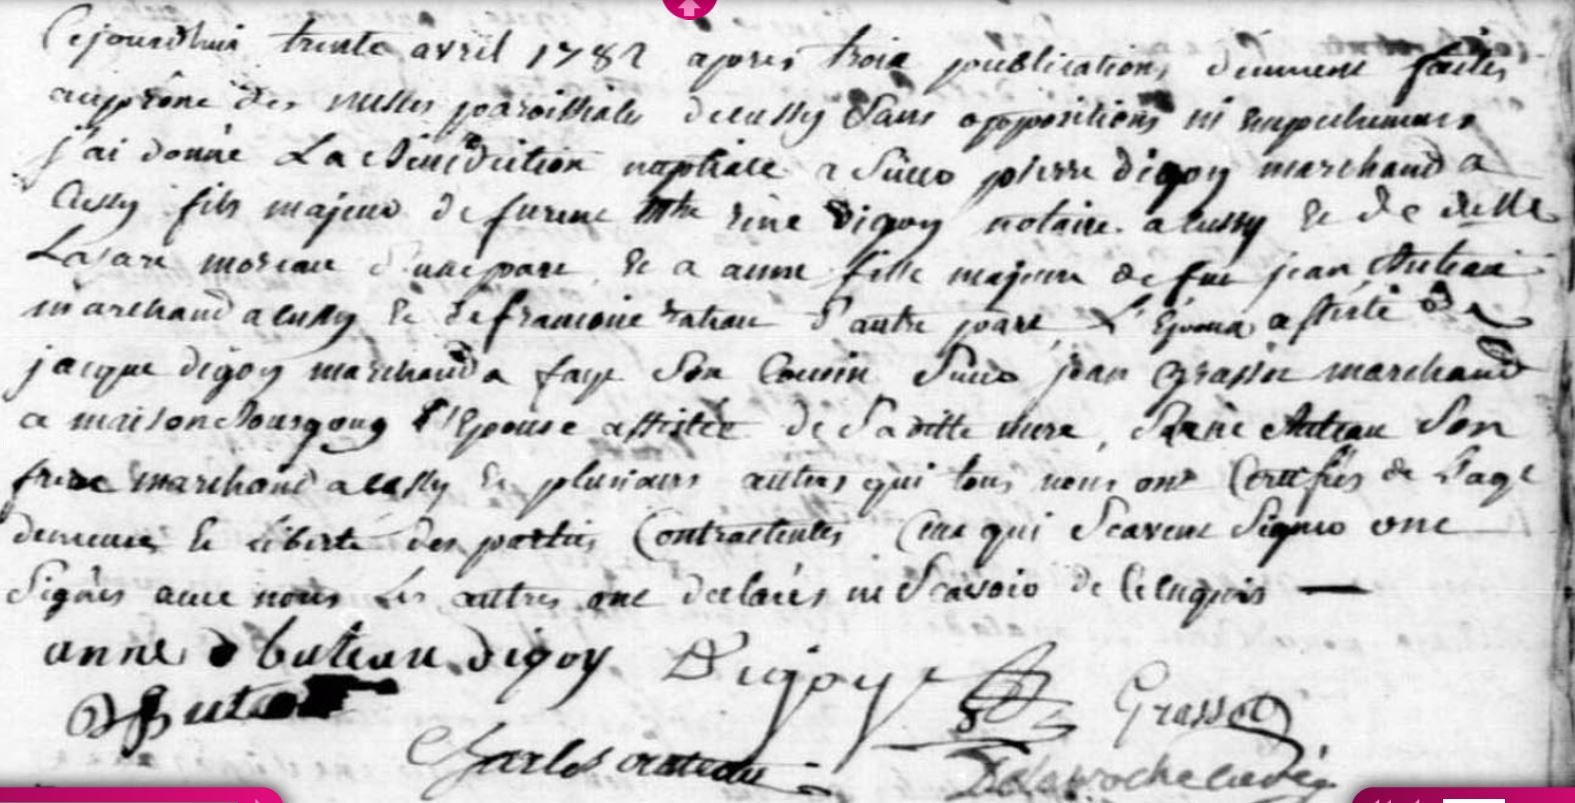 Cejourdhui trente avril 1782 apres trois publications duement faites
au prône des messes paroissiales de cussy sans oppositions ni empechemens
j'ai donné La Bénédiction nuptiale a Sieur pierre digoy marchand a
Cussy fils majeur de furent Mtre réné digoy notaire a cussy & de delle
Lasare moreau d'une part, & a anne fille majeure de feu jean Buteau
marchand a cussy & de francoise rateau d'autre part, L'Epoux assisté de
jacque digoy marchand a faye son Cousin Sieur jean Grasset marchand
a maison Bourgoug L'Epouse assistée de Sa ditte mere, Buteau Son
frere marchand a cussy & plusieurs autres qui tous nous ont Certifiés de L'age
demeure & Liberté des parties Contractentes Ceux qui Scavent Signer ont
Signés avec nous Les autres ont declarés ne Scavoir de ce enquis —
anne buteau digoy Digoy
Buteau Grasset
Charles rateau